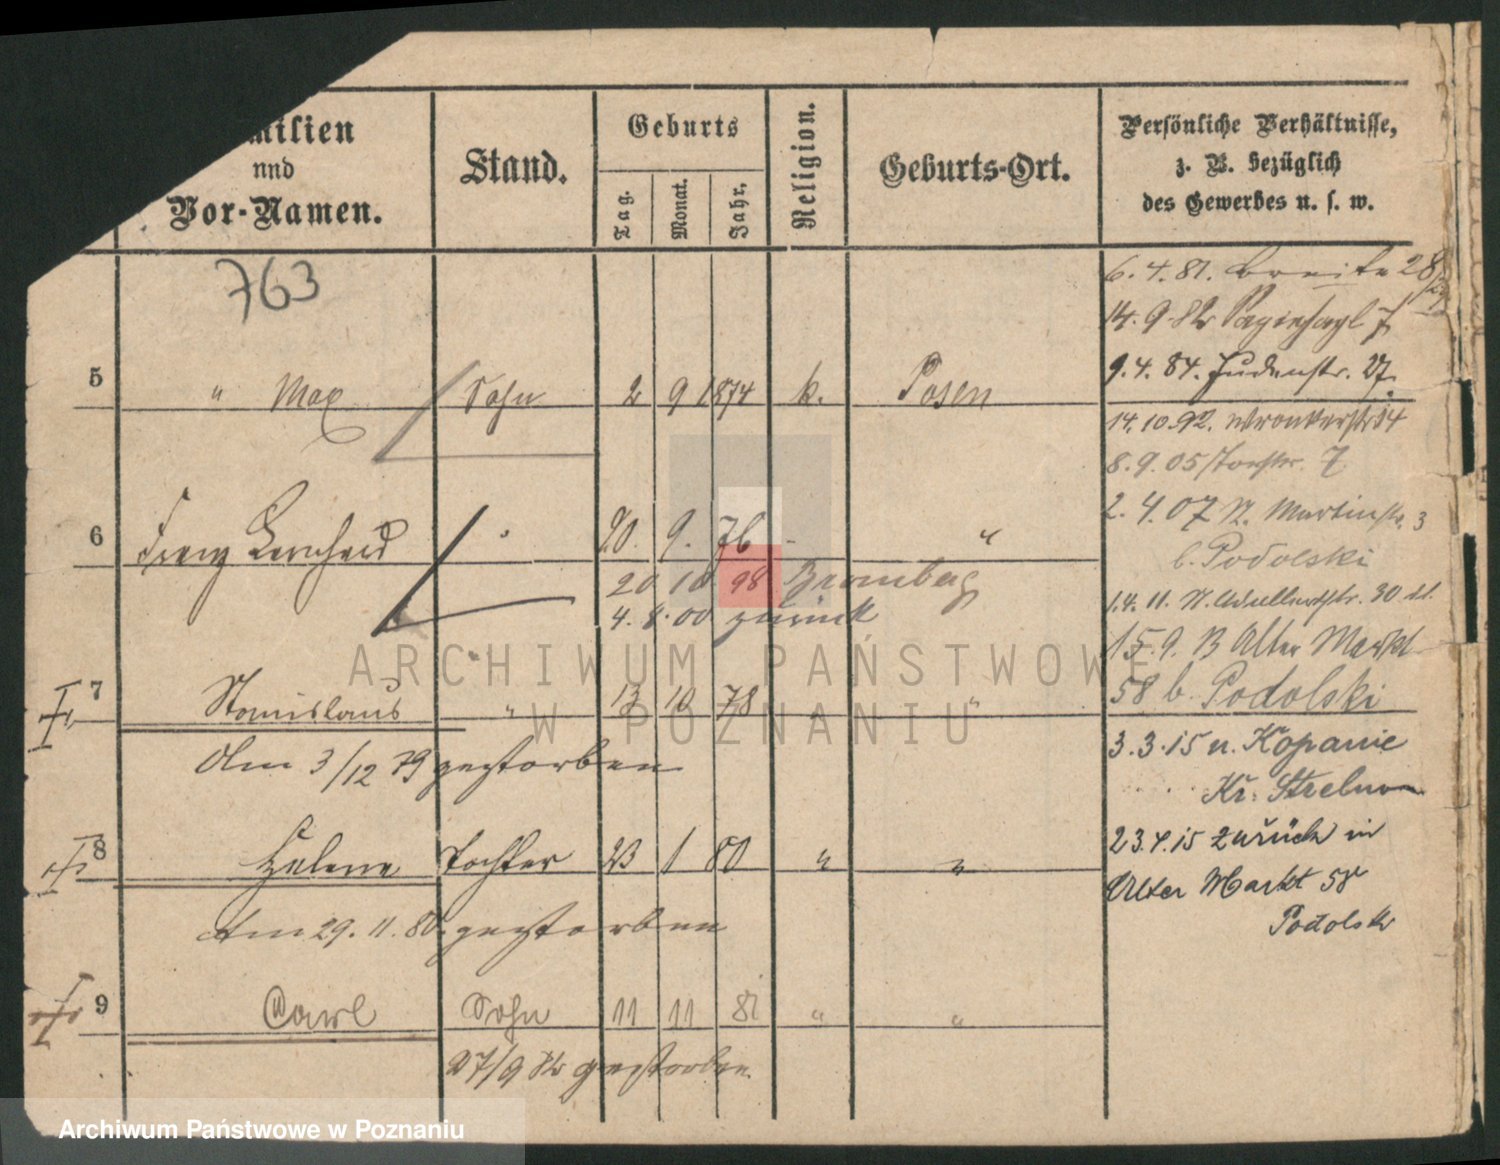 milien
und
Vor-Namen.
Stand.
Geburts
Tag.
Monat.
Jahr.
Religion.
Geburts-Ort.
Persönliche Verhältnisse,
z. B. bezüglich
des Gewerbes u. s. w.
763
5 " Max Sohn 2 9 1874 k. Posen
6 Franz Bernhard " 20. 9. 76 - "
20 10 98 Bromberg
4. 8. 00 zurück
7 Stanislaus " 13 10 78 " "
Am 3/12 79 gestorben
8 Helene Tochter 23 1 80 " "
Am 29. 11. 80. gestorben
9 Carl Sohn 11 11 81 " "
27/9 82 gestorben
6. 4. 81. Breite 28
14. 9. 82
9. 4. 84. Judenstr. 27.
14. 10. 92. Wronkerstr. 14
8. 9. 05 7
2. 4. 07 N. Martinstr. 3
b. Podolski
1. 4. 11. N. 30
15. 9. 13 Alter Markt
58 b. Podolski
3. 3. 15 n. Kopanie
Kr. Strelno
23. 4. 15 zurück in
Alter Markt 58
Podolski
ARCHIWUM PAŃSTWOWE
W POZNANIU
Archiwum Państwowe w Poznaniu